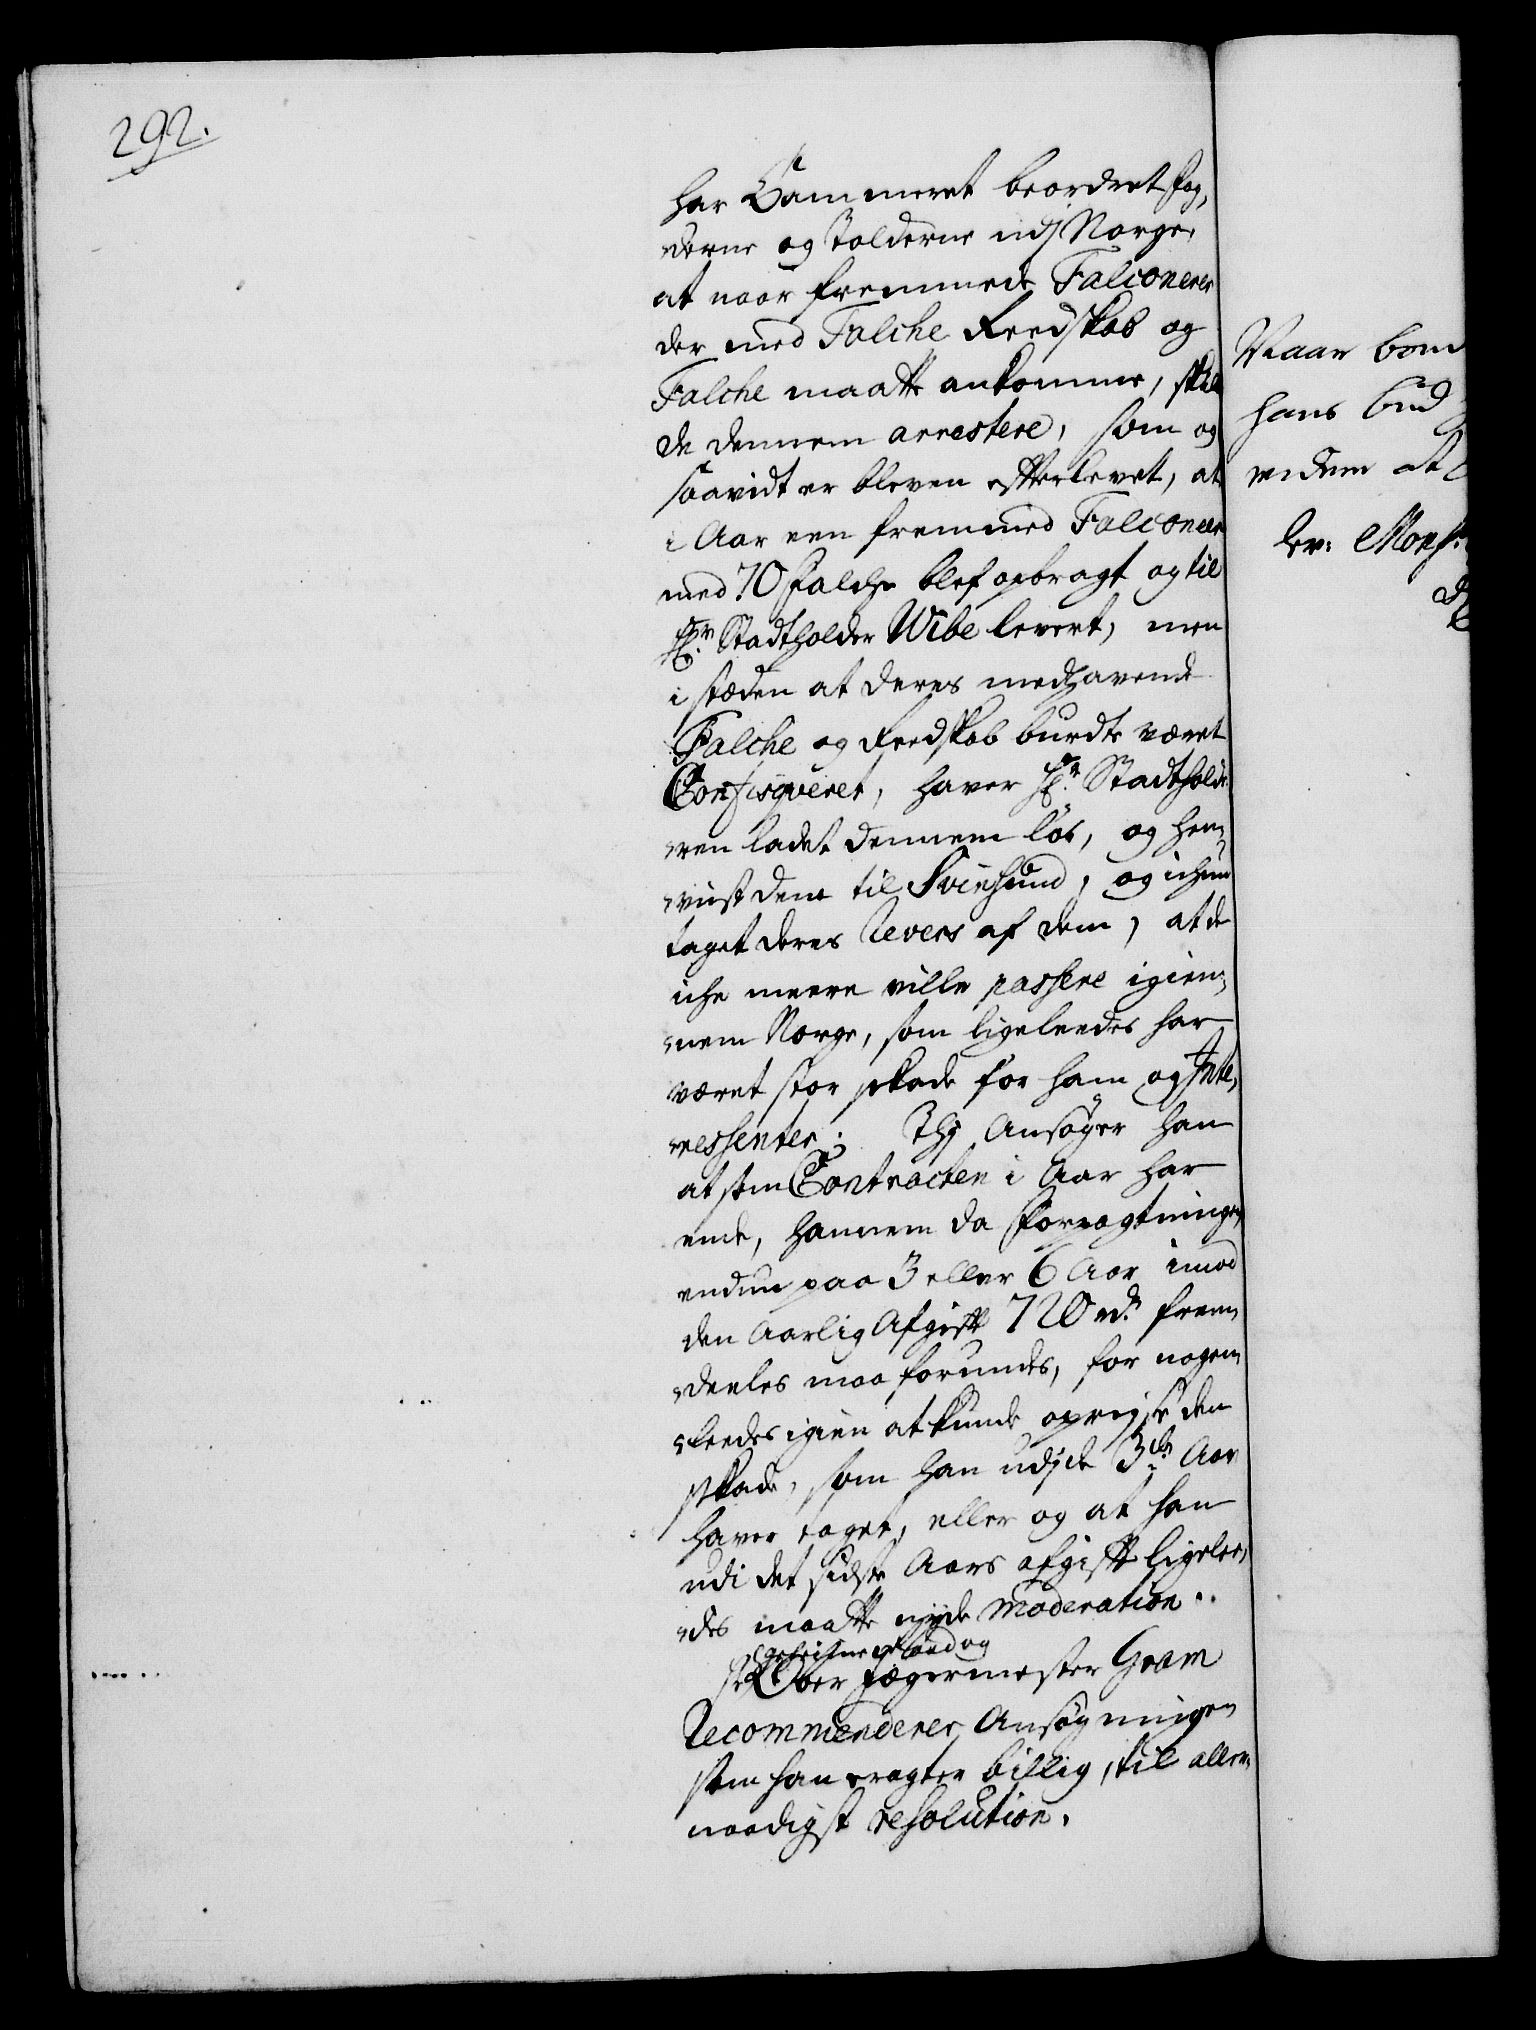 292.
har Cammeret beordret fog,
derne og Tolderne udj Norge,
at naar fremmede Falconerer
der med Falche Reedskab og
Falche maatte ankomme, skul
de dennem arrestere, som og
saavidt er bleven efterlevet, at
i Aar een fremmed Falconeer
med 70 Falche blef opbragt og til
Hr. Stadtholder Wibe levert, men
i stæden at deres medhavende
Falche og Reedskab burdte været
Confisqveret, haver Hr. Stadtholde
ren ladet dennem løs, og hen,
viist dem til Svinesund, og ichun
taget deres Revers af dem, at de
iche meere ville passere igien,
nem Norge, som ligeleedes har
været stor skade for ham og Inte,
ressenter; Thj Ansøger han
at som Contracten i Aar har
ende, hannem da Forpagtningen
endnu paa 3 eller 6 Aar imod
den Aarlig Afgift 720 rdr. frem,
deeles maa forundes, for nogen,
leedes igien at kunde oprejse den
skade, som han udj de 3de Aar
haver taget, eller og at han
udi det sidste Aars afgift ligelee,
des maatte nyde Moderation.
geheime Raad og
Hr. Ober Jægermester Gram
Recommenderer Ansøgningen
som han eragter billig, til aller,
naadigst resolution.
Naar bem
hans bud
videm at
ler: Mons.